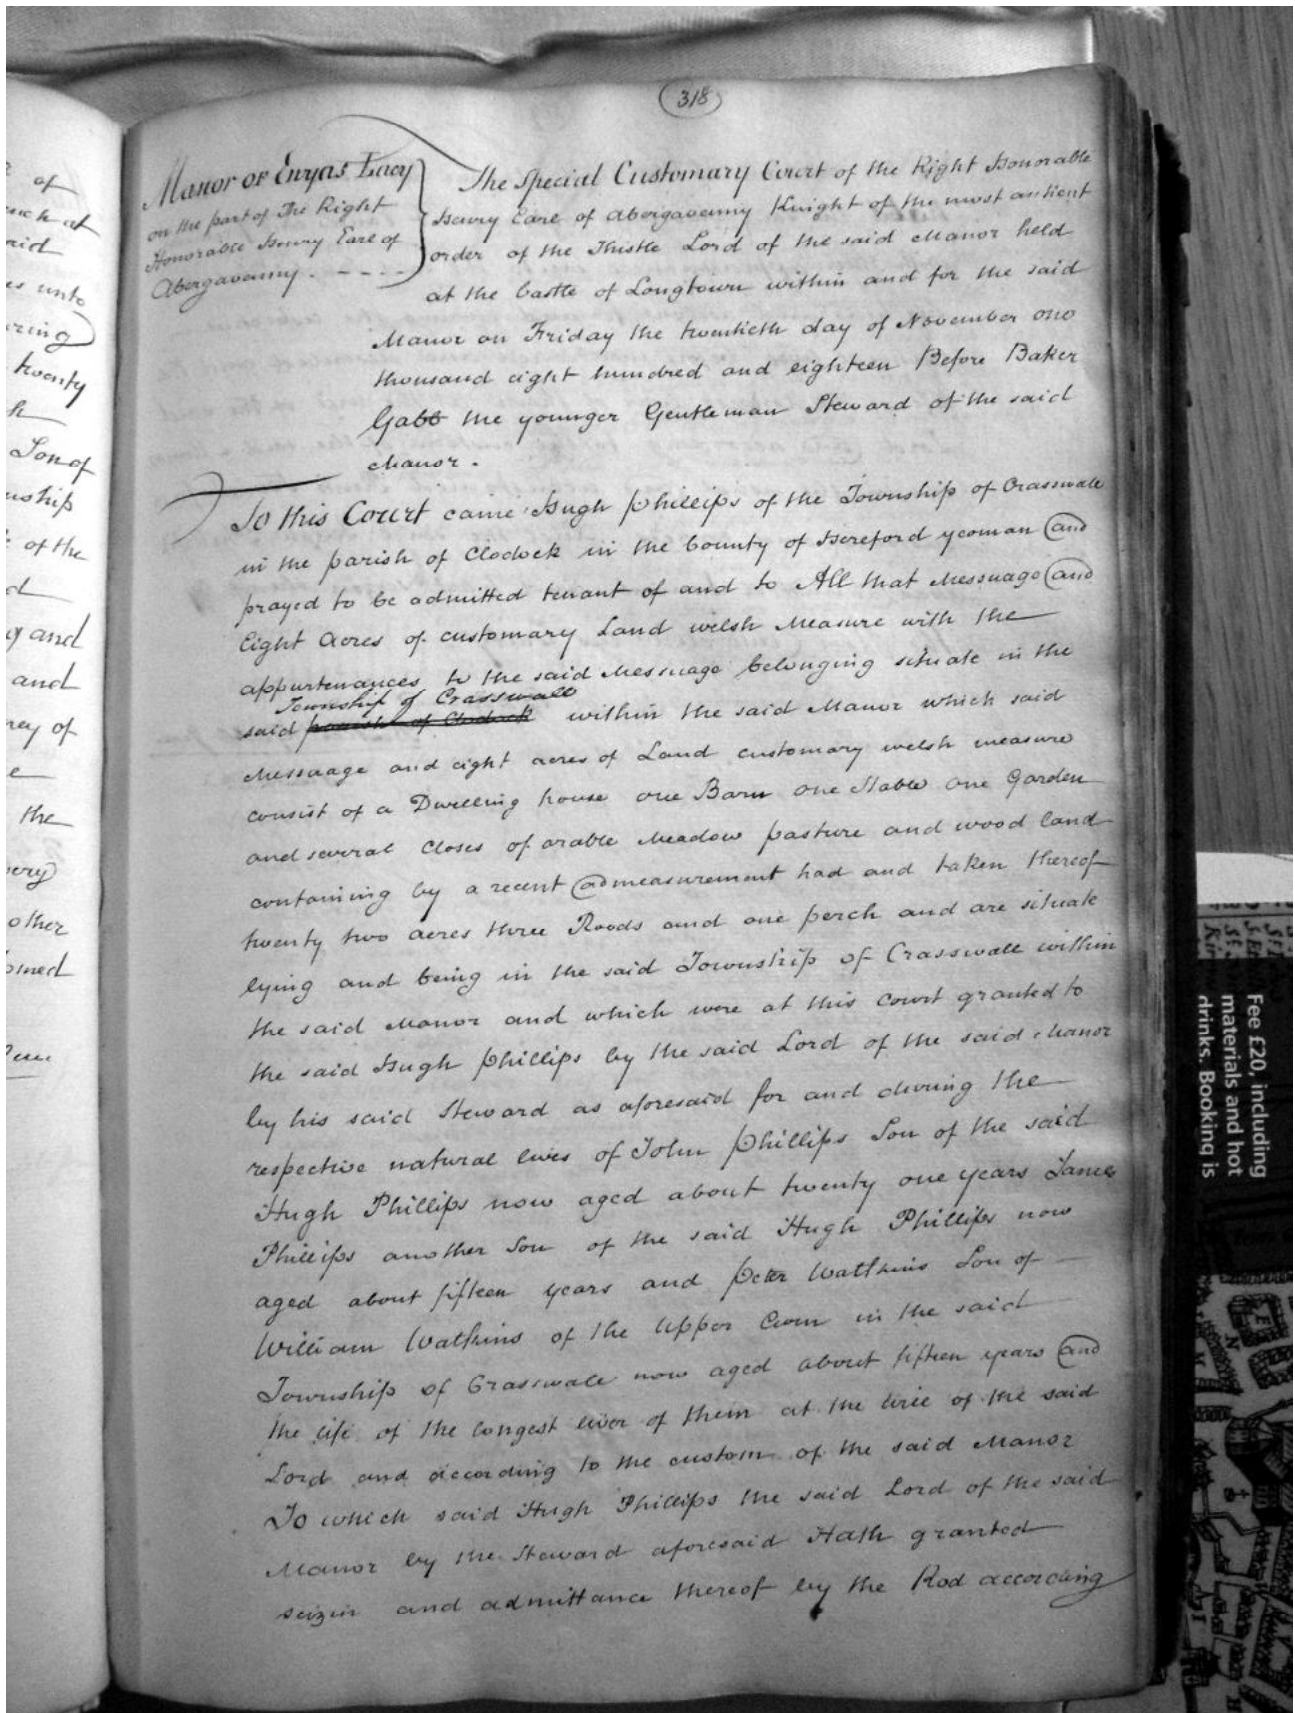 318
Manor of Ewyas Lacy
on the part of The Right
Honorable Henry Earl of
Abergavenny. - - - -
The Special Customary Court of the Right Honorable
Henry Earl of Abergavenny Knight of the most antient
order of the Thistle Lord of the said Manor held
at the Castle of Longtown within and for the said
Manor on Friday the twentieth day of November one
thousand eight hundred and eighteen Before Baker
Gabb the younger Gentleman Steward of the said
Manor.
To this Court came Hugh Phillips of the Township of Crasswall
in the parish of Clodock in the County of Hereford yeoman and
prayed to be admitted tenant of and to All that Messuage and
Eight Acres of customary Land welsh Measure with the
appurtenances to the said Messuage belonging situate in the
Township of Crasswall
said parish of Clodock within the said Manor which said
Messuage and eight acres of Land customary welsh measure
consist of a Dwelling house one Barn one Stable one Garden
and several Closes of arable Meadow pasture and wood land
containing by a recent admeasurement had and taken thereof
twenty two acres three Roods and one perch and are situate
lying and being in the said Township of Crasswall within
the said Manor and which were at this Court granted to
the said Hugh Phillips by the said Lord of the said Manor
by his said Steward as aforesaid for and during the
respective natural lives of John Phillips Son of the said
Hugh Phillips now aged about twenty one years James
Phillips another Son of the said Hugh Phillips now
aged about fifteen years and Peter Watkins Son of
William Watkins of the Upper Cwm in the said
Township of Crasswall now aged about fifteen years and
the life of the longest liver of them at the will of the said
Lord and according to the custom of the said Manor
To which said Hugh Phillips the said Lord of the said
Manor by the Steward aforesaid Hath granted
seizin and admittance thereof by the Rod according
of
such at
said
unto
twenty
Son of
of the
and
and
of
the
other
Fee £20, including
materials and hot
drinks. Booking is